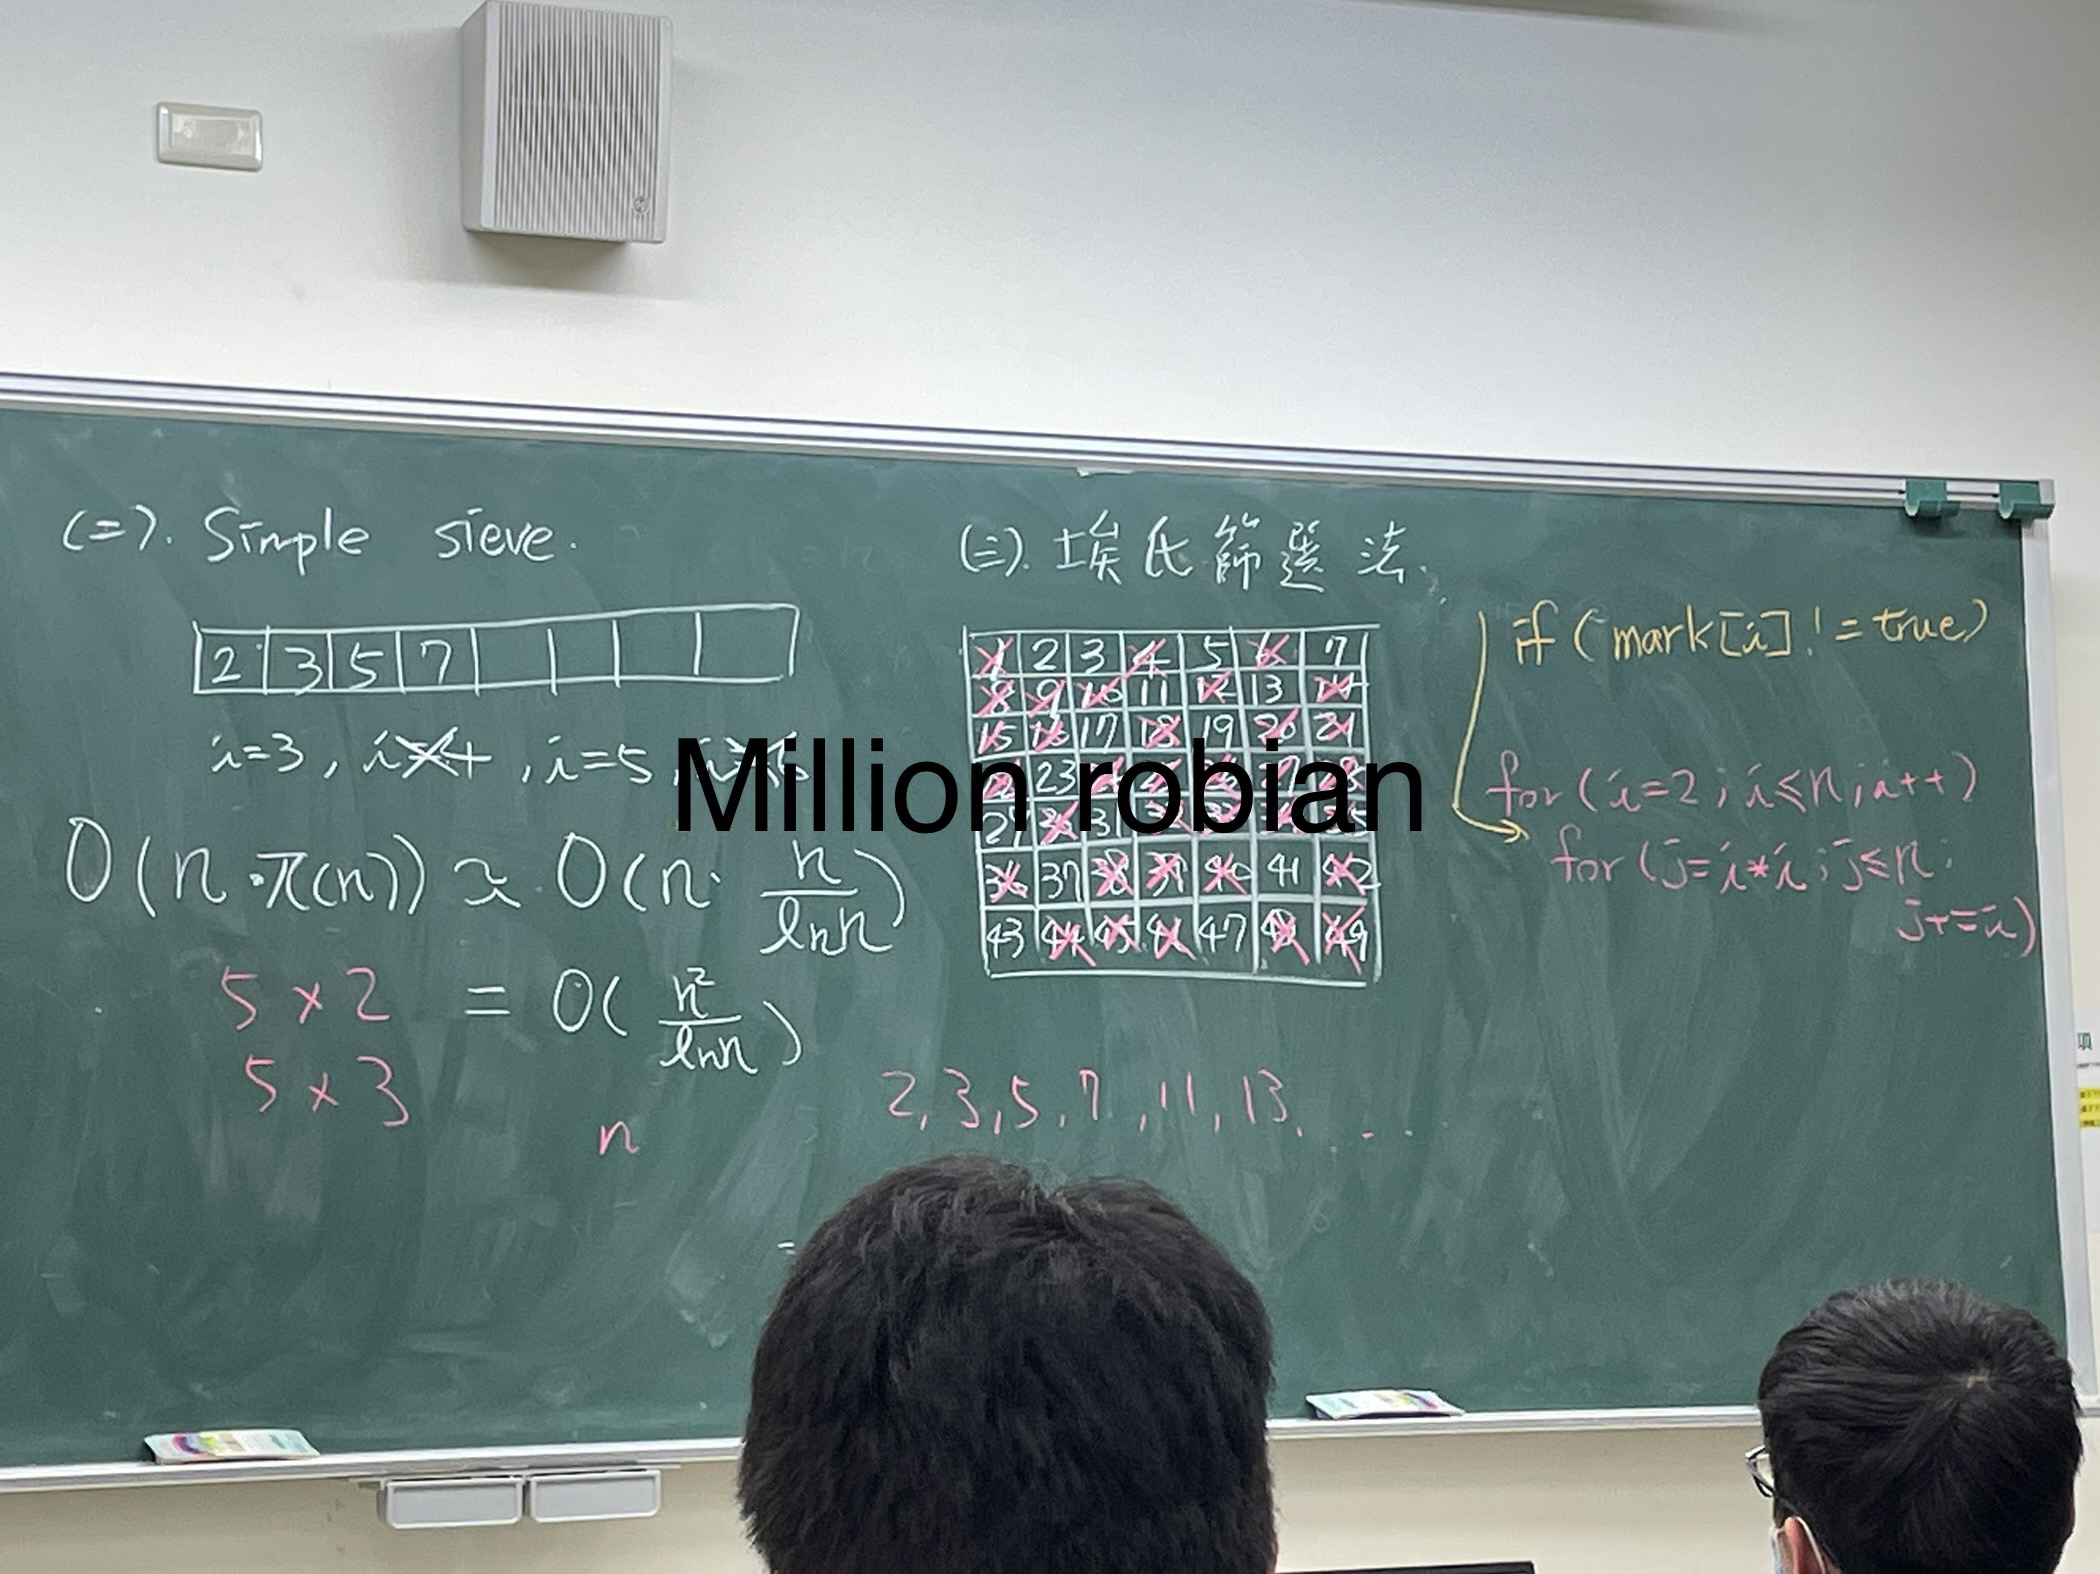 (二). Simple sieve.
2 3 5 7
i=3, i=4, i=5, i=6
O(n·π(n)) ≈ O(n· n/ln n)
= O( n²/ln n )
5 x 2
5 x 3
n
(三). 埃氏篩選法.
1 2 3 4 5 6 7
8 9 10 11 12 13 14
15 16 17 18 19 20 21
22 23
29 30 31
36 37 38 39 40 41 42
43 44 45 46 47 48 49
2, 3, 5, 7, 11, 13, ...
if (mark[i] != true)
for (i=2; i≤n; i++)
for (j=i*i; j≤n;
j+=i)
Million robian
項